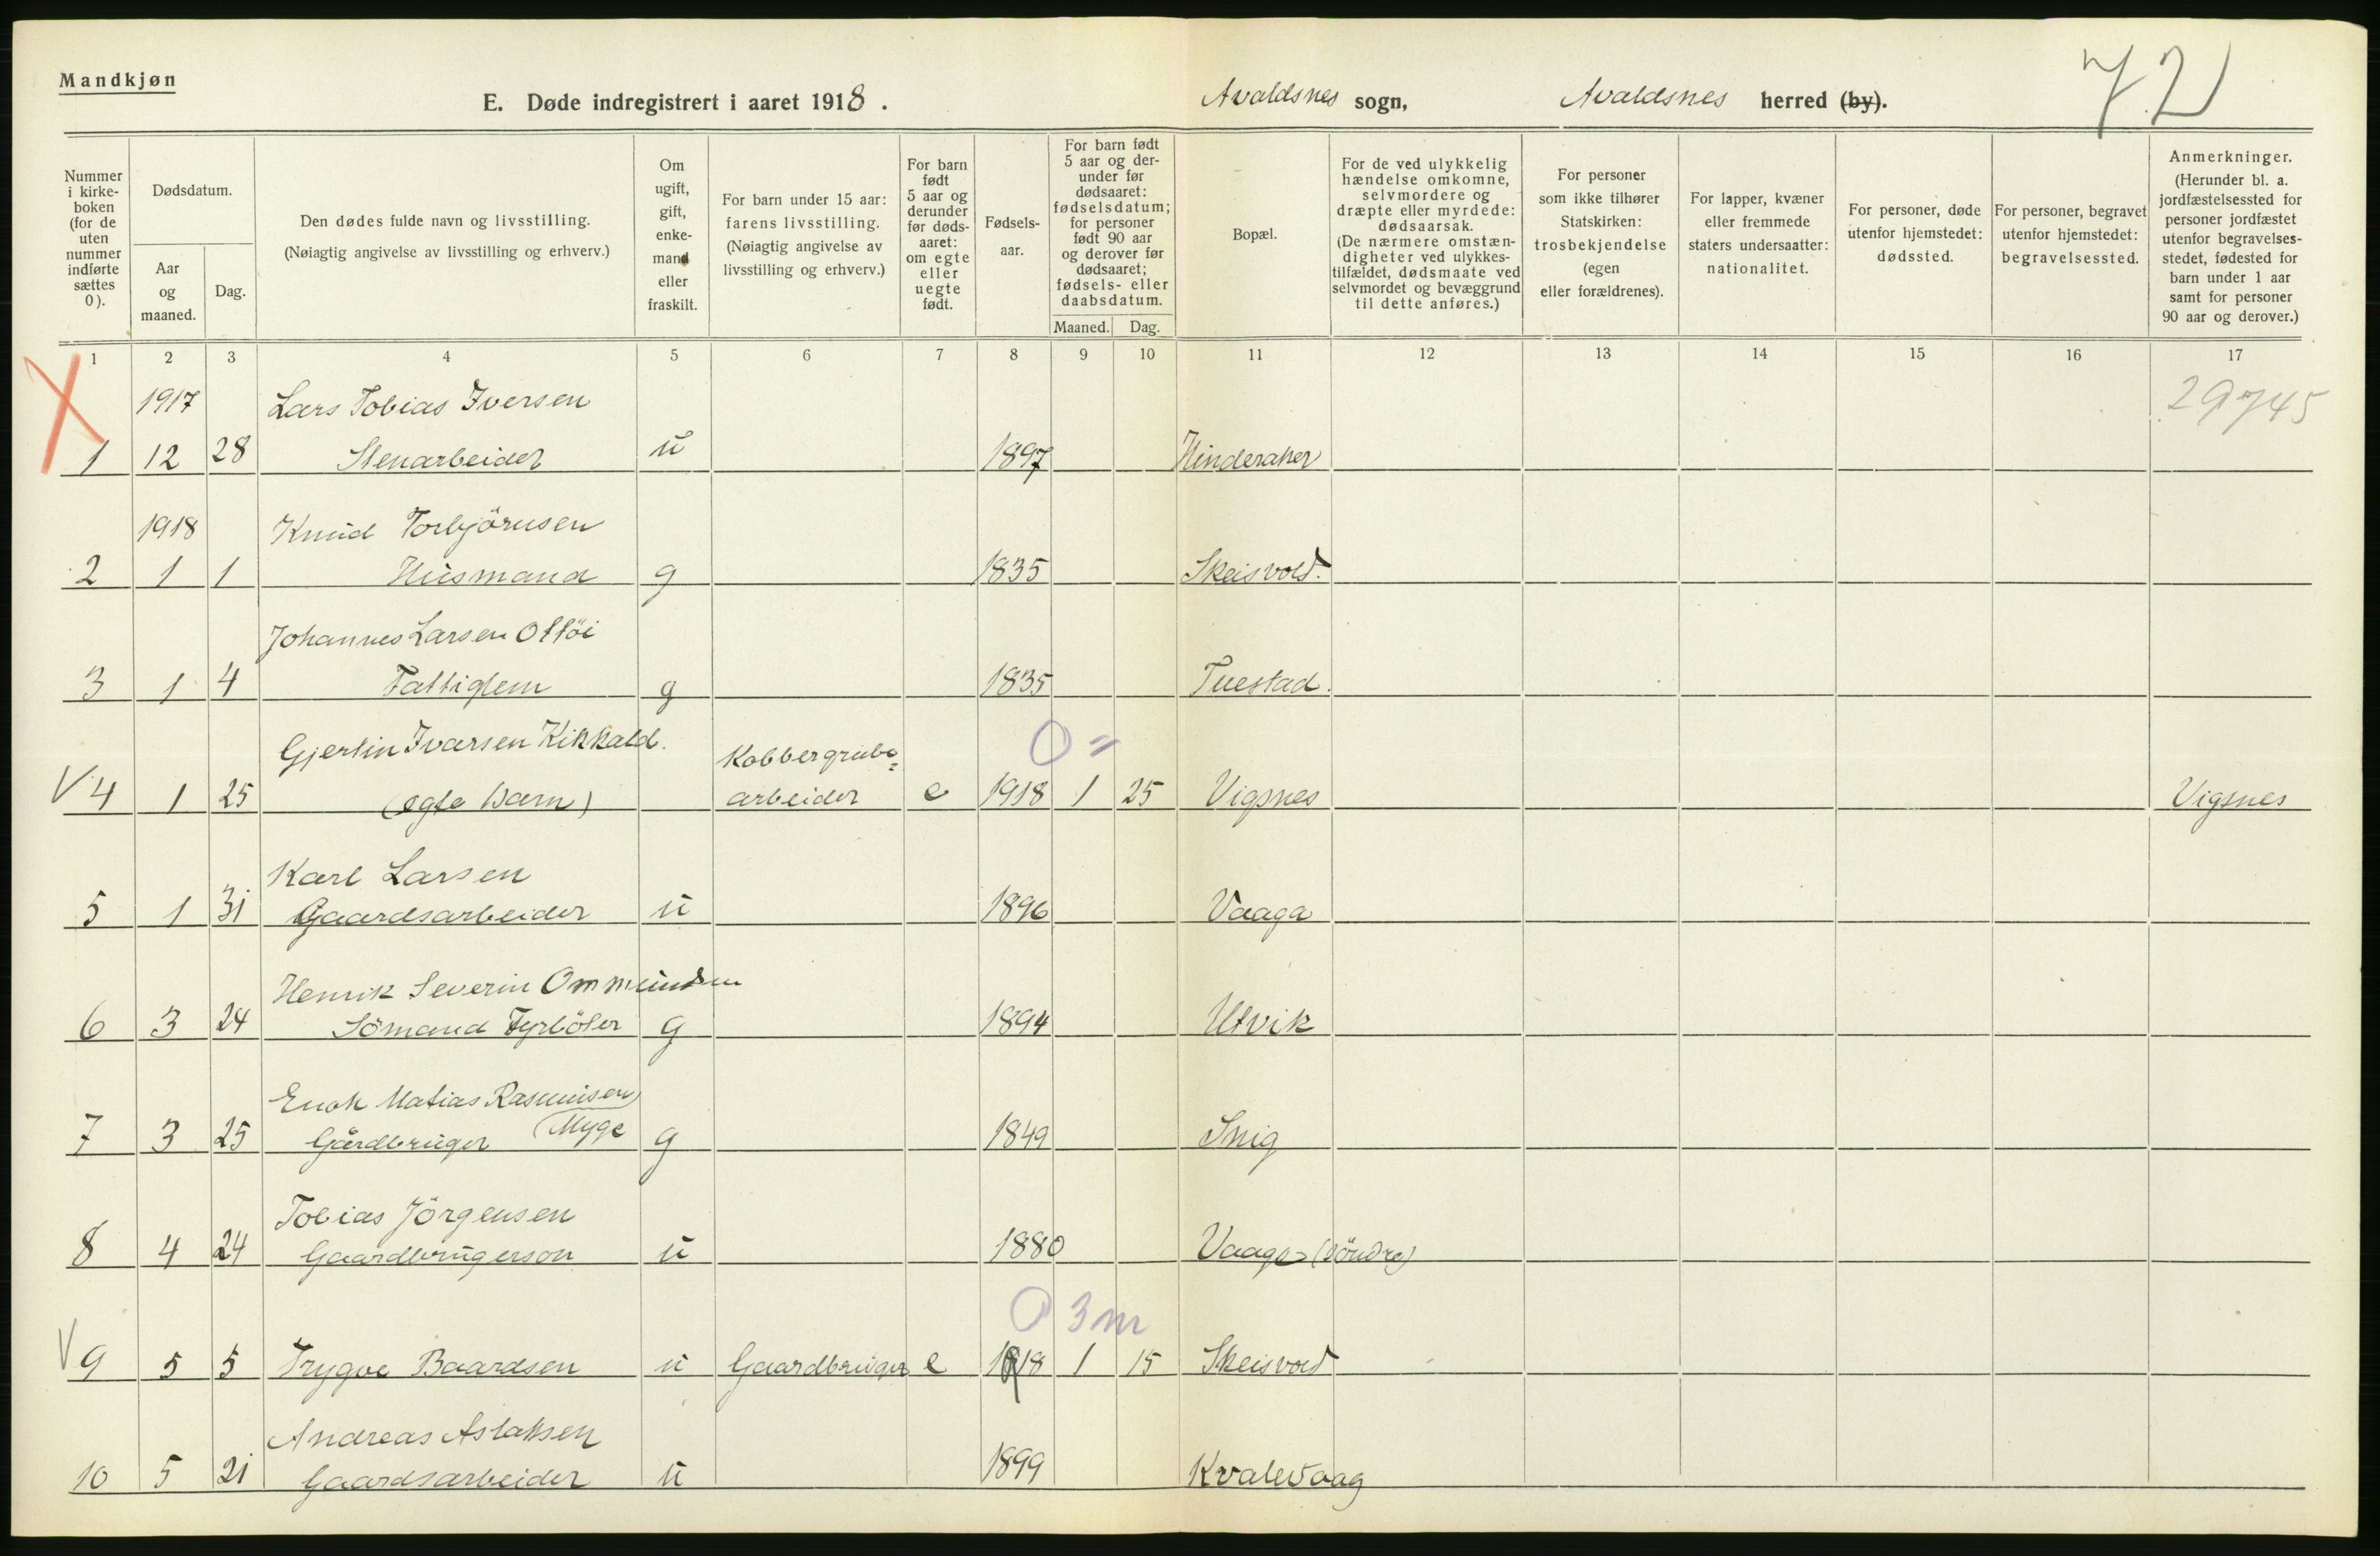 Mandkjøn
E. Døde indregistrert i aaret 1918.
Avaldsnes sogn, Avaldsnes herred (by).
72
Nummer
i kirke-
boken
(for de
uten
nummer
indførte
sættes
0).
Dødsdatum.
Aar
og
maaned.
Dag.
Den dødes fulde navn og livsstilling.
(Nøiagtig angivelse av livsstilling og erhverv.)
Om
ugift,
gift,
enke-
mand
eller
fraskilt.
For barn under 15 aar:
farens livsstilling.
(Nøiagtig angivelse av
livsstilling og erhverv.)
For barn
født
5 aar og
derunder
før døds-
aaret:
om egte
eller
uegte
født.
Fødsels-
aar.
For barn født
5 aar og der-
under før
dødsaaret:
fødselsdatum;
for personer
født 90 aar
og derover før
dødsaaret;
fødsels- eller
daabsdatum.
Maaned. Dag.
Bopæl.
For de ved ulykkelig
hændelse omkomne,
selvmordere og
dræpte eller myrdede:
dødsaarsak.
(De nærmere omstæn-
digheter ved ulykkes-
tilfældet, dødsmaate ved
selvmordet og bevæggrund
til dette anføres.)
For personer
som ikke tilhører
Statskirken:
trosbekjendelse
(egen
eller forældrenes).
For lapper, kvæner
eller fremmede
staters undersaatter:
nationalitet.
For personer, døde
utenfor hjemstedet:
dødssted.
For personer, begravet
utenfor hjemstedet:
begravelsessted.
Anmerkninger.
(Herunder bl. a.
jordfæstelsessted for
personer jordfæstet
utenfor begravelses-
stedet, fødested for
barn under 1 aar
samt for personer
90 aar og derover.)
1 2 3 4 5 6 7 8 9 10 11 12 13 14 15 16 17
1917 Lars Tobias Iversen 29745
1 12 28 Stenarbeider u 1897 Hinderaker
1918 Knud Torbjörnsen
2 1 1 Husmand g 1835 Skeisvold.
Johannes Larsen Ottöi
3 1 4 Fattiglem g 1835 Tuestad.
Gjertin Ivarsen Kikkald. Kobbergrube= 0 =
V 4 1 25 (egte barn) arbeider e 1918 1 25 Vigsnes Vigsnes
Karl Larsen
5 1 31 Gaardsarbeider u 1896 Vaaga
Henrik Severin Ommundsen
6 3 24 Sömand Fyrböter g 1894 Utvik
Enok Matias Rasmusen
7 3 25 Gårdbruger (Myge g 1849 Snig
Tobias Jörgensen
8 4 24 Gaardbrugerson u 1880 Vaage (söndre)
0 3 m
V 9 5 5 Trygve Baardsen u Gaardbruger e 1918 1 15 Skeisvold
Andreas Aslaksen
10 5 21 Gaardsarbeider u 1899 Kvalevaag